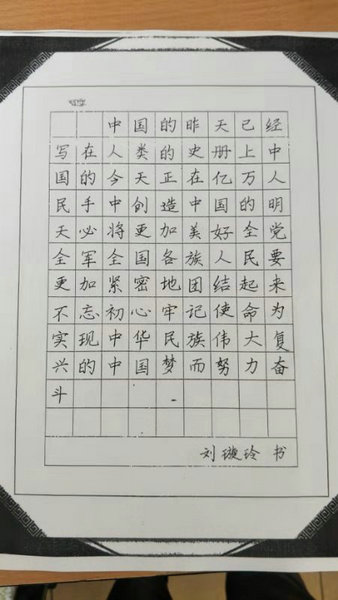 中国的昨天已经
写在人类的史册上中
国的今天正在亿万人
民手中创造中国的明
天必将更加美好全党
全军全国各族人民要
更加紧密地团结起来
不忘初心牢记使命为
实现中华民族伟大复
兴的中国梦而努力奋
斗
刘璇玲 书